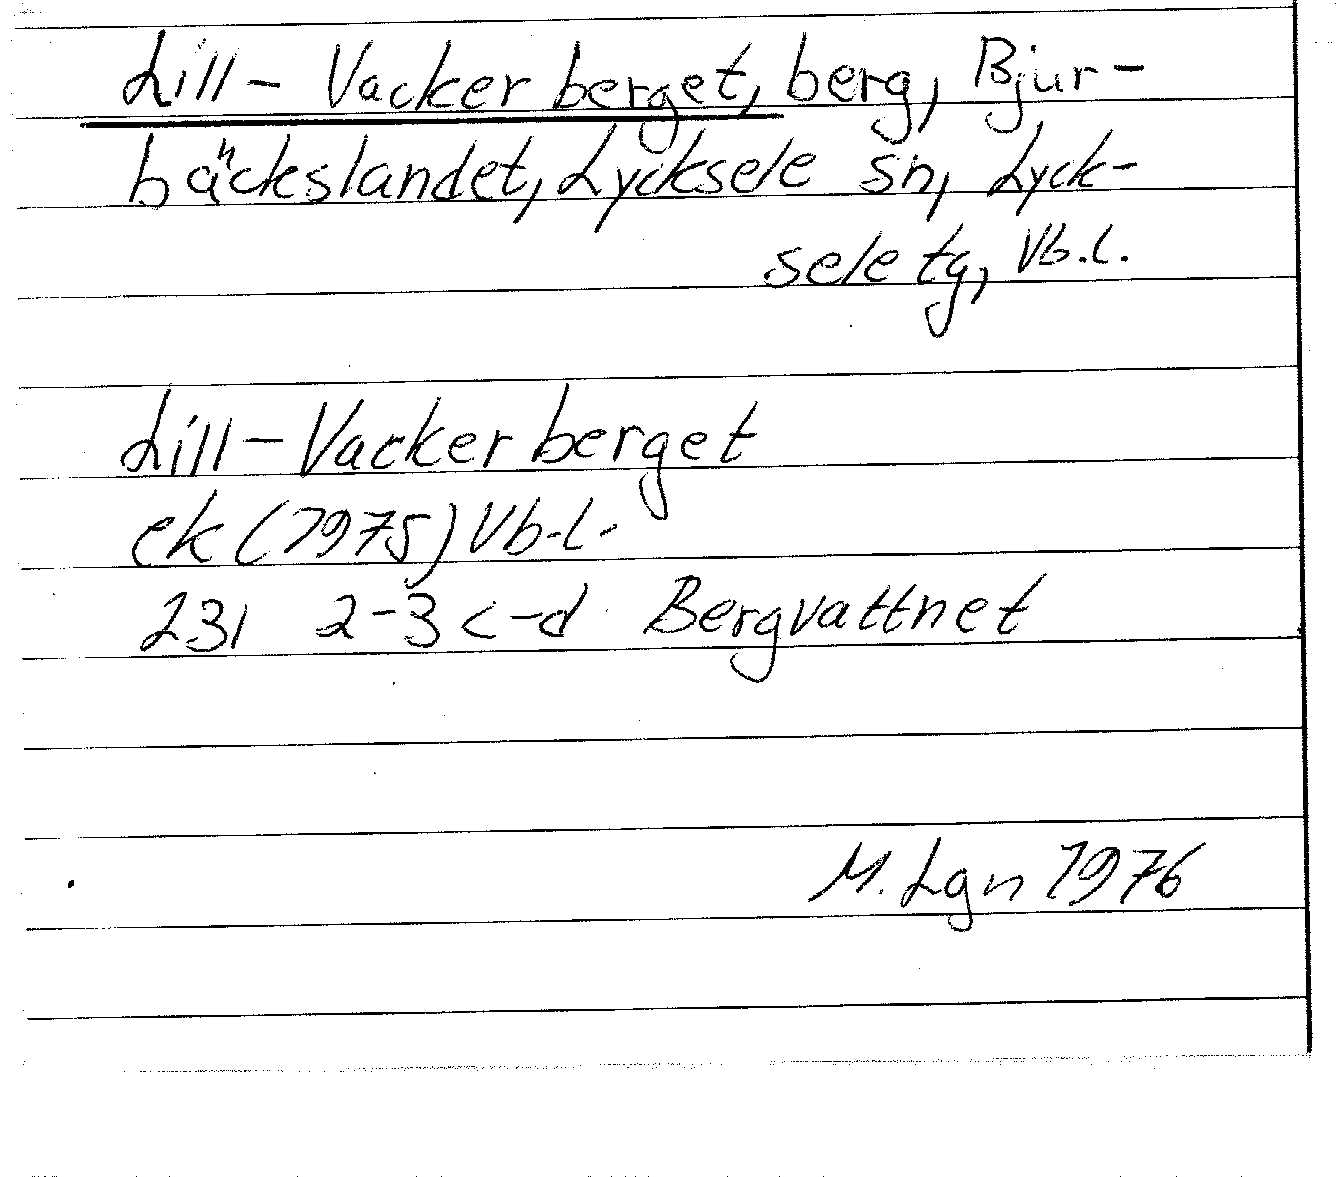 Lill-Vackerberget, berg, Bjur-
bäckslandet, Lycksele sn, Lyck-
sele tg, Vb.l.
Lill-Vackerberget
ek (1975) Vb.l.
231 2-3 c-d Bergvattnet
M. Lgn 1976